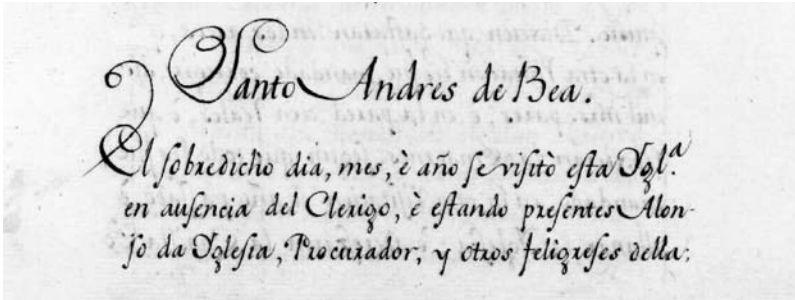 Santo Andres de Bea.
El sobredicho dia, mes, è año se visitò esta Ygl.ª
en ausencia del Clerigo, è estando presentes Alon-
so da Yglesia, Procurador, y otros feligreses della: